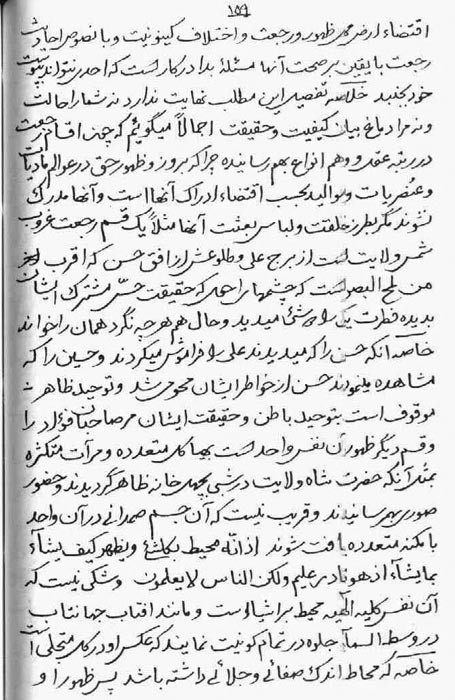 ۱۵۹
اقتضاء ارض محل ظهور و رجعت و اختلاف کینونیت و با نصوص احادیث
رجعت با یقین بر صحت آنها مسئلهٔ بدا در کار است که احدی نتواند پوست
خود بگنجد خلاصه تفصیل این مطلب نهایت ندارد نه شما را حالت
و نه مرا دماغ بیان کیفیت و حقیقت اجمالاً میگوئیم که چون اقسام رجعت
در رتبه عقد و وهم انواع بهم رسانیده چرا که بروز و ظهور حق در عوالم مادیات
و عنصریات و موالید بحسب اقتضاء ادراک آنها است و آنها مدرک
نشوند مگر بطرز خلقت و لباس بعثت آنها مثلاً یک قسم رجعت غروب
شمس ولایت است از برج علی و طلوعش از افق حسن که اقرب
من لمح البصر است که چشمها را حدی که حقیقت حسّ مشترک ایشان
بدیده فطرت یکی را میدیدند و حال هم هر چه نگرد همان را خواند
خاصه آنکه حسن را که میدیدند علی را فراموش میکردند و حسین را که
مشاهده مینمودند حسن از خواطر ایشان محو می شد و توحید ظاهر
موقوف است بتوحید باطن و حقیقت ایشان مر صاحبان فؤاد را
و قسم دیگر ظهور آن نفس واحد است بهیاکل متعدده و مرآت متکثره
بمثل آنکه حضرت شاه ولایت در شبی بچهل خانه ظاهر گردیدند و حضور
صوری بهم رسانیدند و قریب نیست که آن جسم صمدانی در آن واحد
بامکنه متعدده یافت شوند اذ انّه محیط بکلشئ و یظهر کیف یشآء
بما یشآء اذ هو نادر علیم ولکن الناس لا یعلمون و شکی نیست که
آن نفس کلیه الهیه محیط بر اشیاء است و مانند افتاب جهانتاب
در وسط السمآء جلوه در تمام کونیت نمایند که عکس او در کل متجلی است
خاصه که محاط اندک صفائی و جلائی داشته باشد پس ظهور او